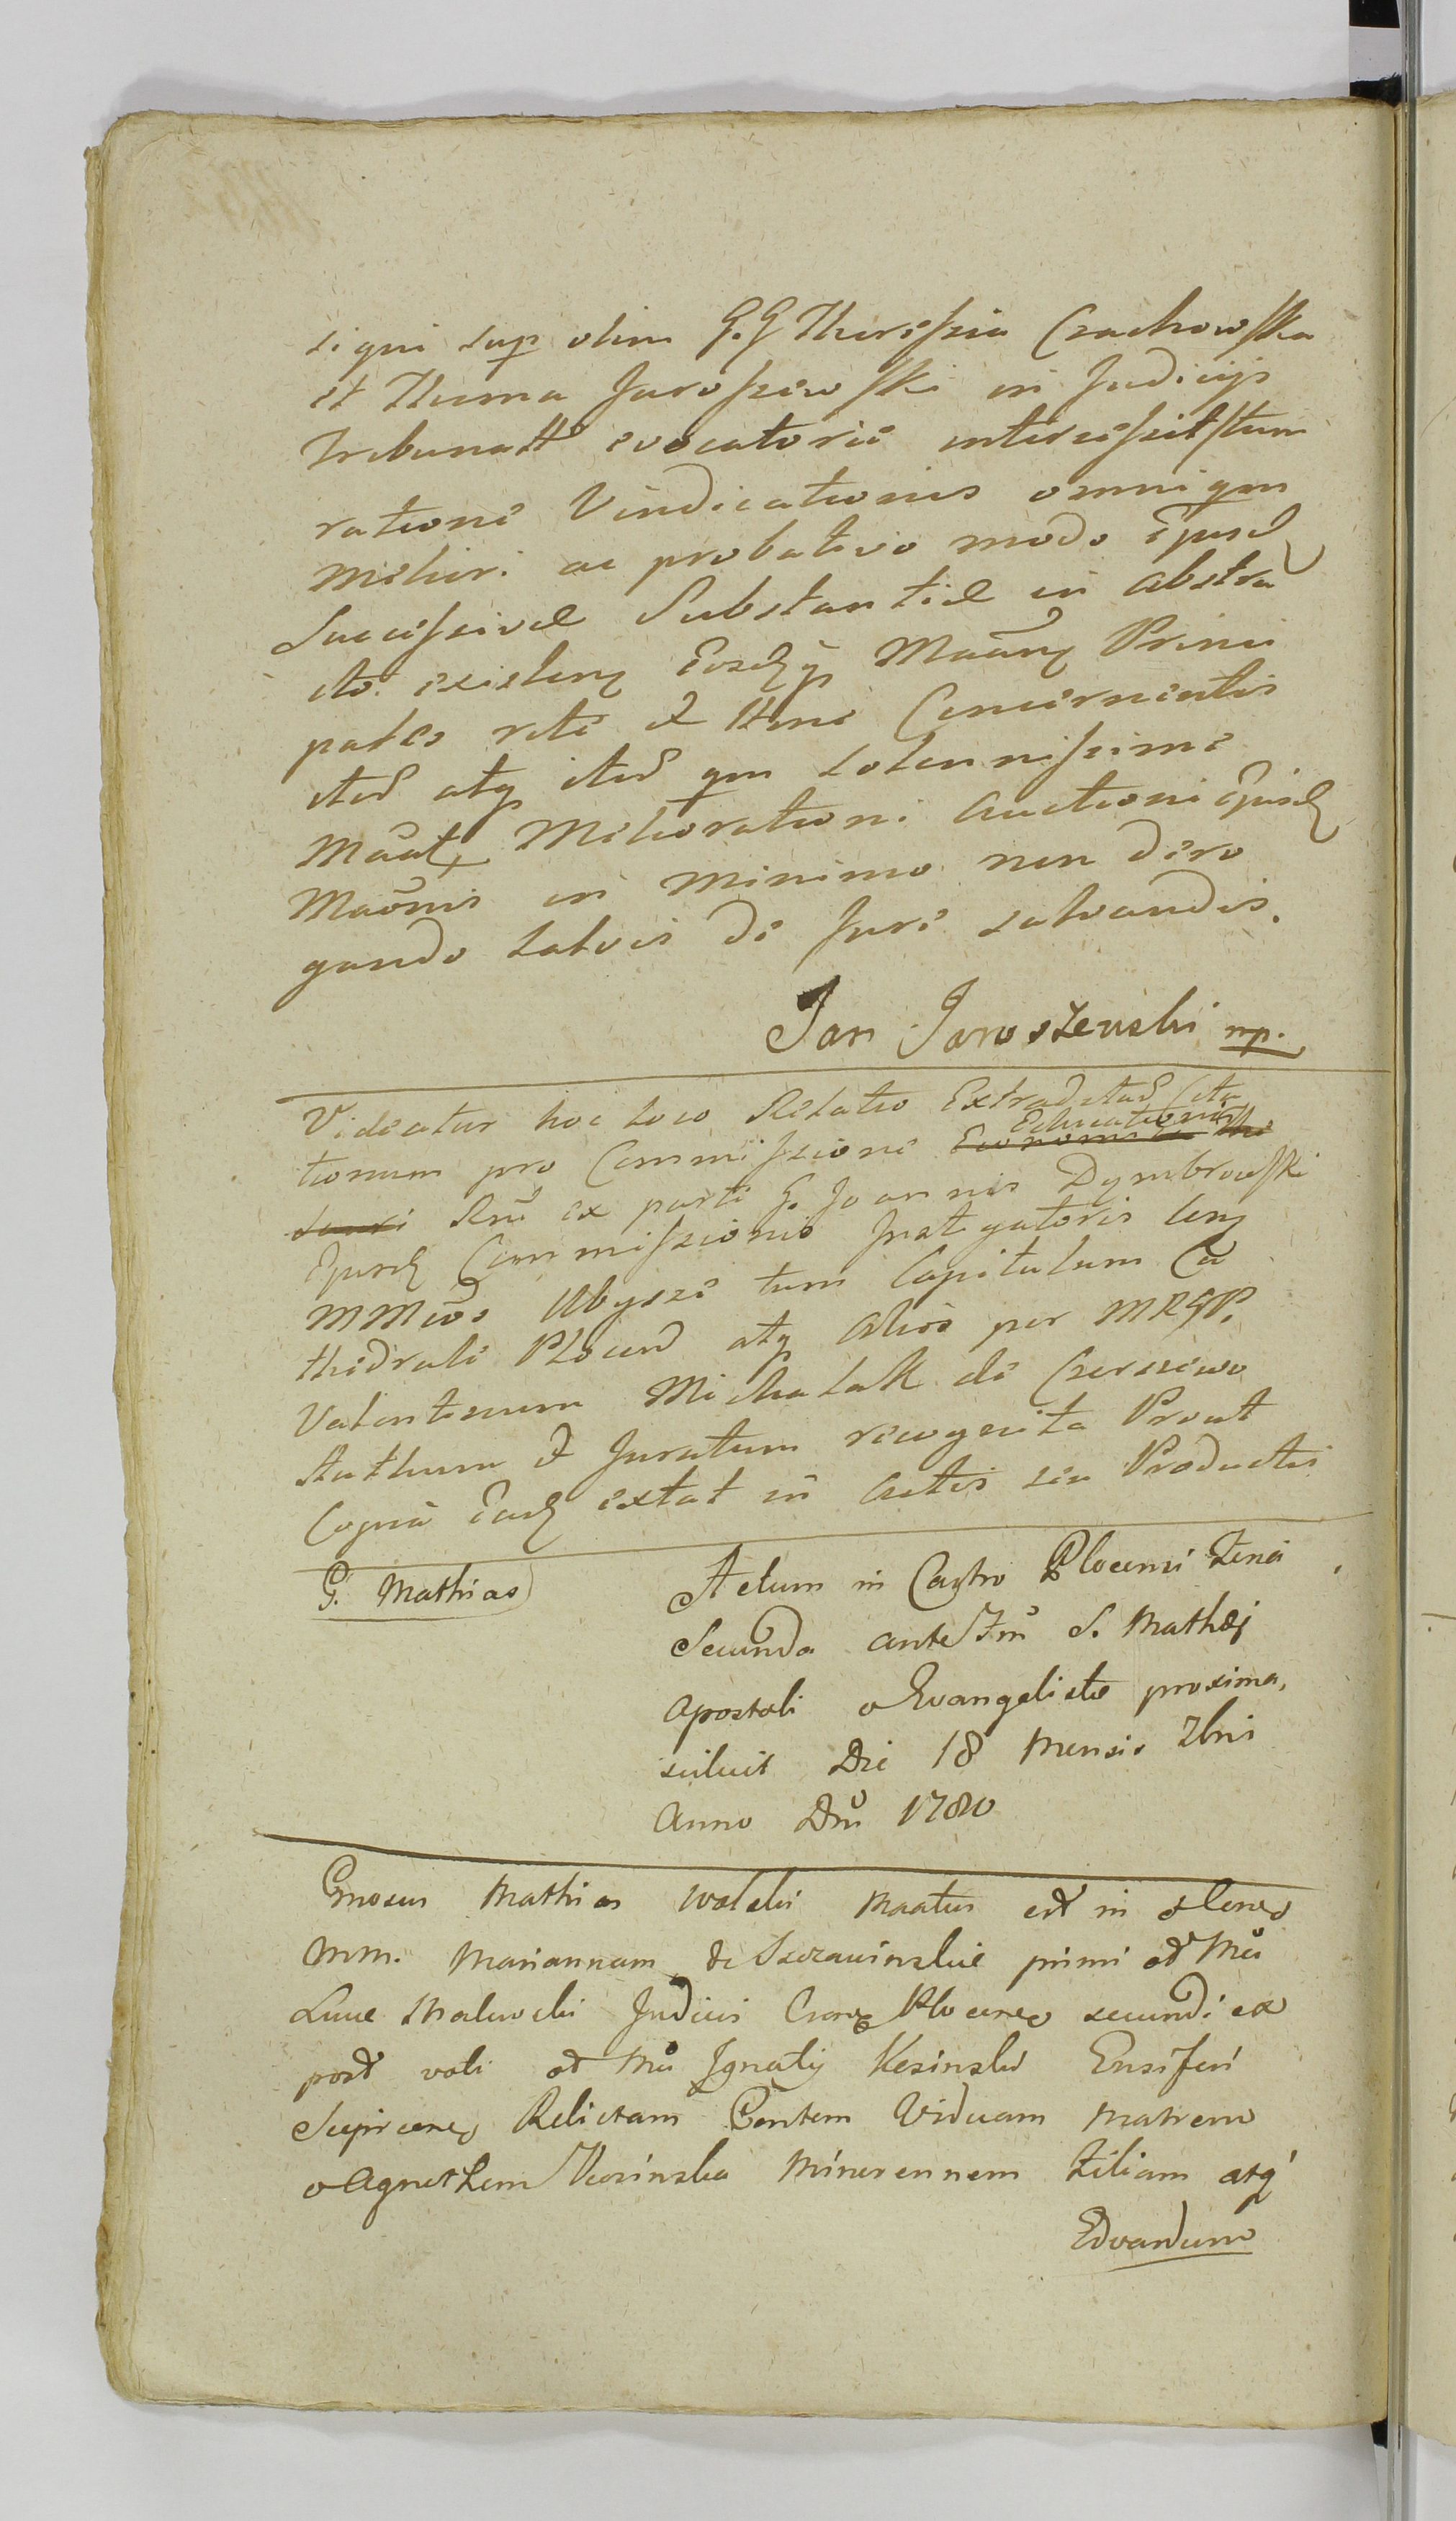 si qui sup olim G.G Theressia Czachowska
et Thoma Jarossewski in Judicijs
Tribunatt evocatorie intercessitstum
ratione Vindicationis omniqm
meliori ac probativo modo Ejusd
Successivae Substantiae in abstra
cto existen Eosdq Maan Princi
pales rite et ttime Concernentis
ited atq ited qm solennissime
Maat Melioratione auctione Ejusd
Maonis in minimo non dero
gando salvis de Jure salvandis.
Jan Jaroszewski mp.
Videatur hoc loco Relatio Extraditae Cita
Educationis
tionum pro Commissione
Rni ex parte G. Joannis Dymbrowski
Ejusd Commissionis Instigatoris Con
MMcos Ubysze tum Capitulum Ca
thedrale Plocen atq alios per MRGP.
Valentinum Michalak de Czerzewo
Authum et Juratum recognita Prout
Copia Ead extat in actis seu Productis
G. Mathias
Actum in Castro Plocensi Feria
Secunda ante Ftm S. Mathaej
Apostoli & Evangelistae proxima,
scilicet Die 18 Mensis 7bris
Anno Dni 1780
Gnosus Mathias Wolski Maatus est in & Cone
Mm. Mariannam de Szczawinskie primi ad Mci
Lucae Malewski Judicis Cran Plocen secundi ex
post voti ad Mci Ignatij Kesinski Ensiferi
Sieprcen Relictam Contem Viduam Matrem
& Agnethem Kesinska Minorennem Filiam atq
Edvardum